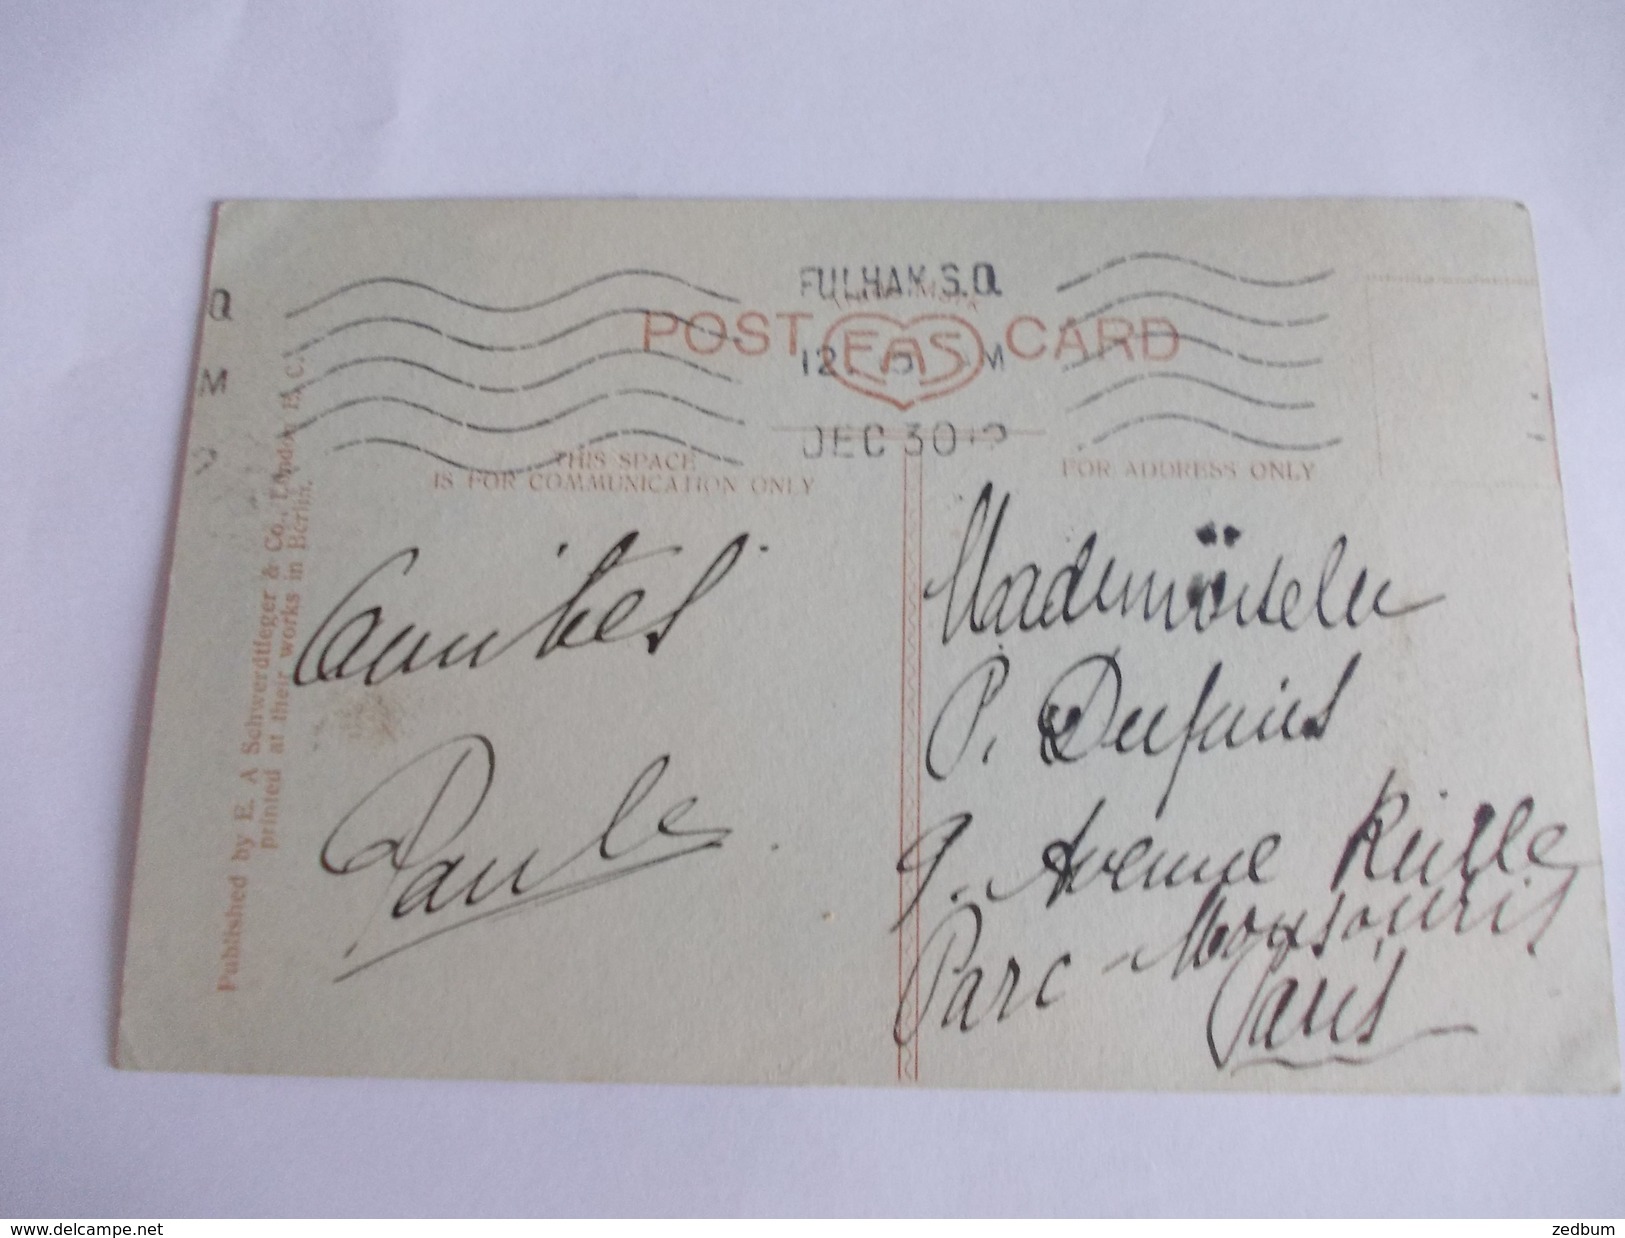 FULHAM S.O
POST EAS CARD
DEC 30 12
THIS SPACE
IS FOR COMMUNICATION ONLY
FOR ADDRESS ONLY
Published by E. A Schwerdtfeger & Co., London E. C.
printed at their works in Berlin.
Amitiés
Paule
Mademoiselle
P. Dufains
9. Avenue Reille
Parc-Montsouris
Paris
delcampe.net
zedbum